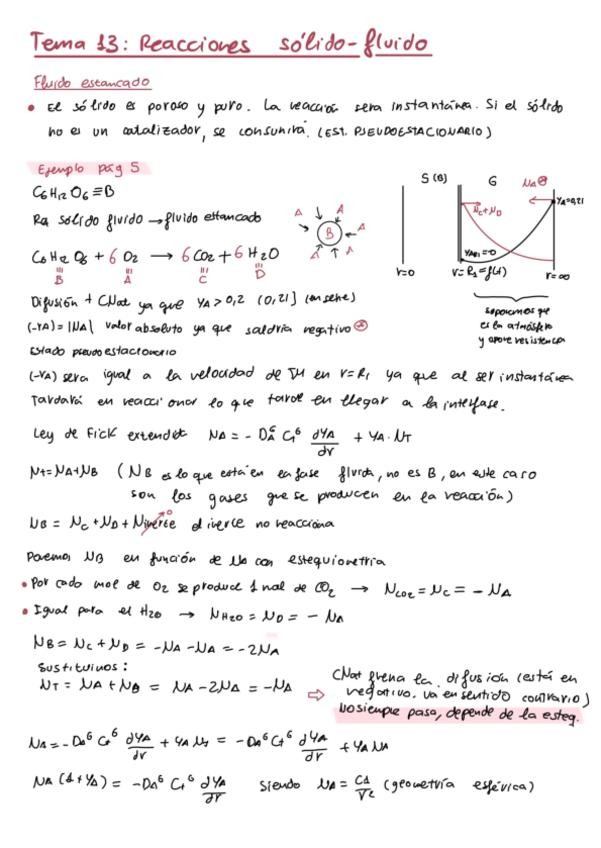 Tema 13: Reacciones sólido-fluido
Fluido estancado
• El sólido es poroso y puro. La reacción sera instantánea. Si el sólido
no es un catalizador, se consumirá. (EST. PSEUDOESTACIONARIO)
Ejemplo pág 5
C6H12O6 ≡ B
Rx sólido fluido → fluido estancado
C6H12O6 + 6 O2 → 6 CO2 + 6 H2O
B A C D
A A A A A A B
S (B) G NA⊗
NC+ND
YA=0,21
YAR1=0
r=0 r=R1=f(t) r=∞
suponemos que
es la atmósfera
y aporte resistencia
Difusión + CNat ya que YA > 0,2 (0,21) (en serie)
(-rA) = |NA| valor absoluto ya que saldría negativo ⊗
Estado pseudoestacionario
(-rA) sera igual a la velocidad de TM en r=R1 ya que al ser instantánea
tardará en reaccionar lo que tarde en llegar a la interfase.
Ley de Fick extendet NA = - DA^G CT^G dYA/dr + YA·NT
NT=NA+NB (NB es lo que está en fase fluida, no es B, en este caso
son los gases que se producen en la reacción)
NB = NC + ND + Ninerte 0 el inerte no reacciona
Ponemos NB en función de NA con estequiometría
• Por cada mol de O2 se produce 1 mol de CO2 → NCO2 = NC = - NA
• Igual para el H2O → NH2O = ND = - NA
NB = NC + ND = -NA - NA = -2NA
Sustituimos:
NT = NA + NB = NA - 2NA = -NA
⇨ CNat frena la difusión (está en
negativo, va en sentido contrario)
No siempre pasa, depende de la esteq.
NA = - DA^G CT^G dYA/dr + YA NT = - DA^G CT^G dYA/dr + YA NA
NA (1+YA) = - DA^G CT^G dYA/dr Siendo NA = C1/r^2 (geometría esférica)